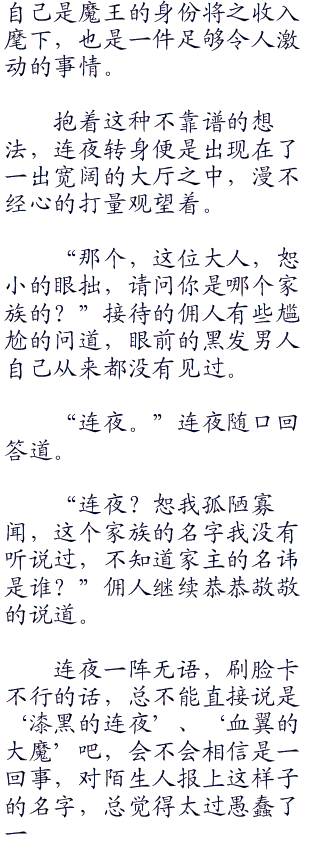 自己是魔王的身份将之收入
麾下，也是一件足够令人激
动的事情。
抱着这种不靠谱的想
法，连夜转身便是出现在了
一出宽阔的大厅之中，漫不
经心的打量观望着。
“那个，这位大人，恕
小的眼拙，请问你是哪个家
族的？”接待的佣人有些尴
尬的问道，眼前的黑发男人
自己从来都没有见过。
“连夜。”连夜随口回
答道。
“连夜？恕我孤陋寡
闻，这个家族的名字我没有
听说过，不知道家主的名讳
是谁？”佣人继续恭恭敬敬
的说道。
连夜一阵无语，刷脸卡
不行的话，总不能直接说是
‘漆黑的连夜’、‘血翼的
大魔’吧，会不会相信是一
回事，对陌生人报上这样子
的名字，总觉得太过愚蠢了
一